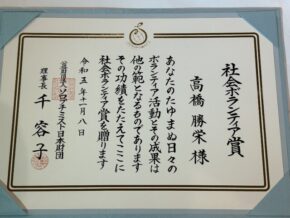 社会ボランティア賞
高橋 勝栄 様
あなたのたゆまぬ日々の
ボランティア活動とその成果は
他の範となるものであります
その功績をたたえてここに
社会ボランティア賞を贈ります
令和五年十一月八日
ソロプチミスト日本財団
理事長 千 容子